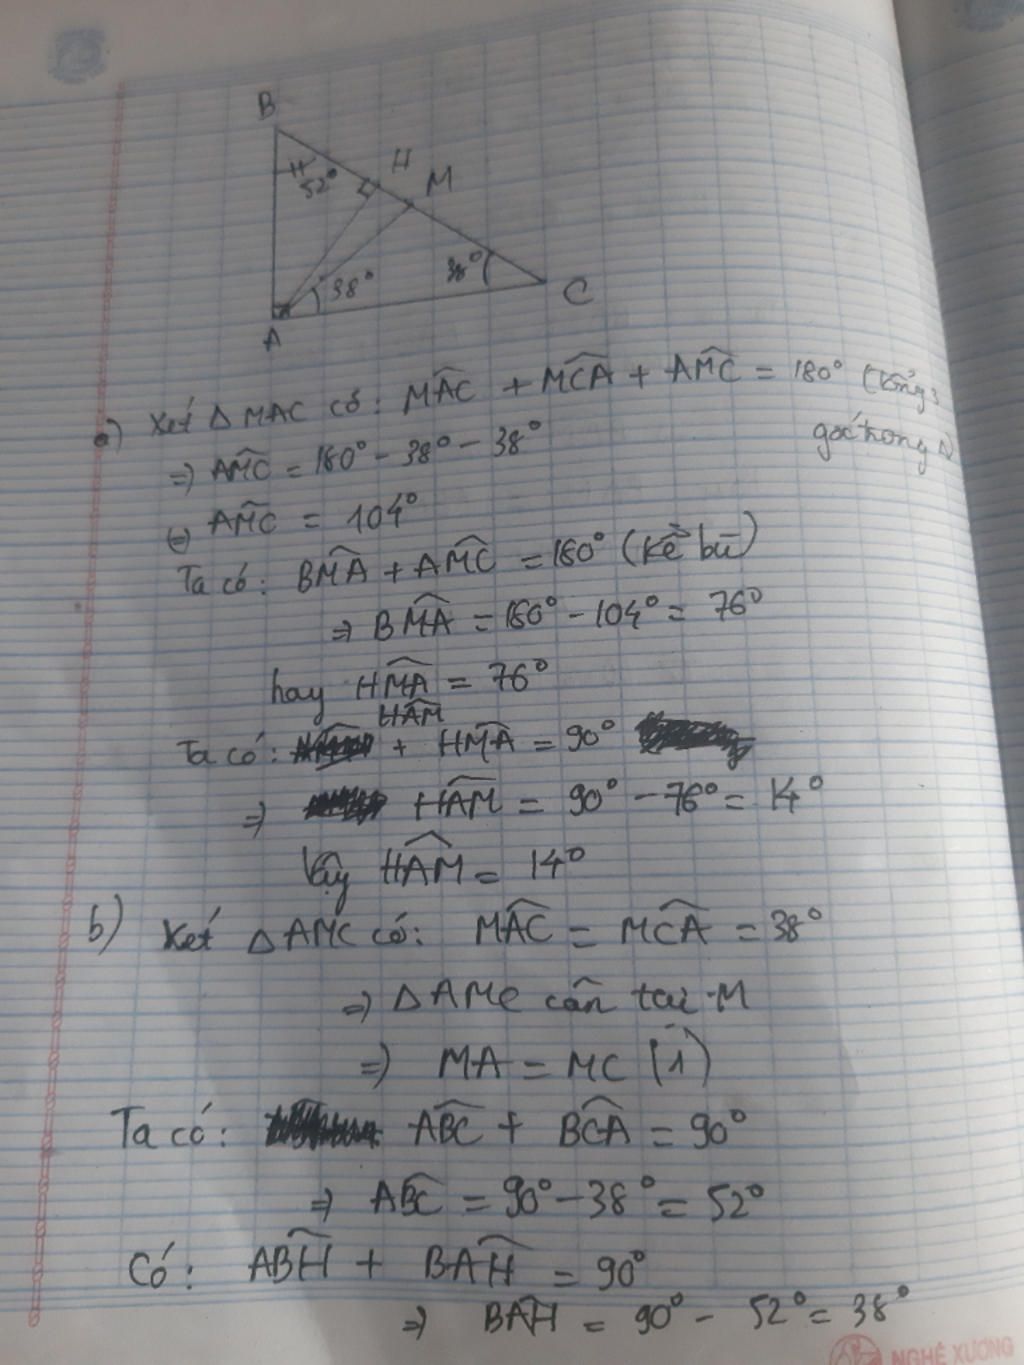 B
H
52°
H
M
38°
38°
C
A
a) Xét △ MAC có: MÂC + MĈA + AM̂C = 180° (tổng 3
góc trong △)
⇒ AM̂C = 180° - 38° - 38°
⇔ AM̂C = 104°
Ta có: BM̂A + AM̂C = 180° (kề bù)
⇒ BM̂A = 180° - 104° = 76°
hay HM̂A = 76°
HÂM
Ta có: + HM̂A = 90°
⇒ HÂM = 90° - 76° = 14°
Vậy HÂM = 14°
b) Xét △ AMC có: MÂC = MĈA = 38°
⇒ △ AMC cân tại M
⇒ MA = MC (1)
Ta có: AB̂C + BĈA = 90°
⇒ AB̂C = 90° - 38° = 52°
Có: AB̂H + BÂH = 90°
⇒ BÂH = 90° - 52° = 38°
NGHÊ XƯƠNG